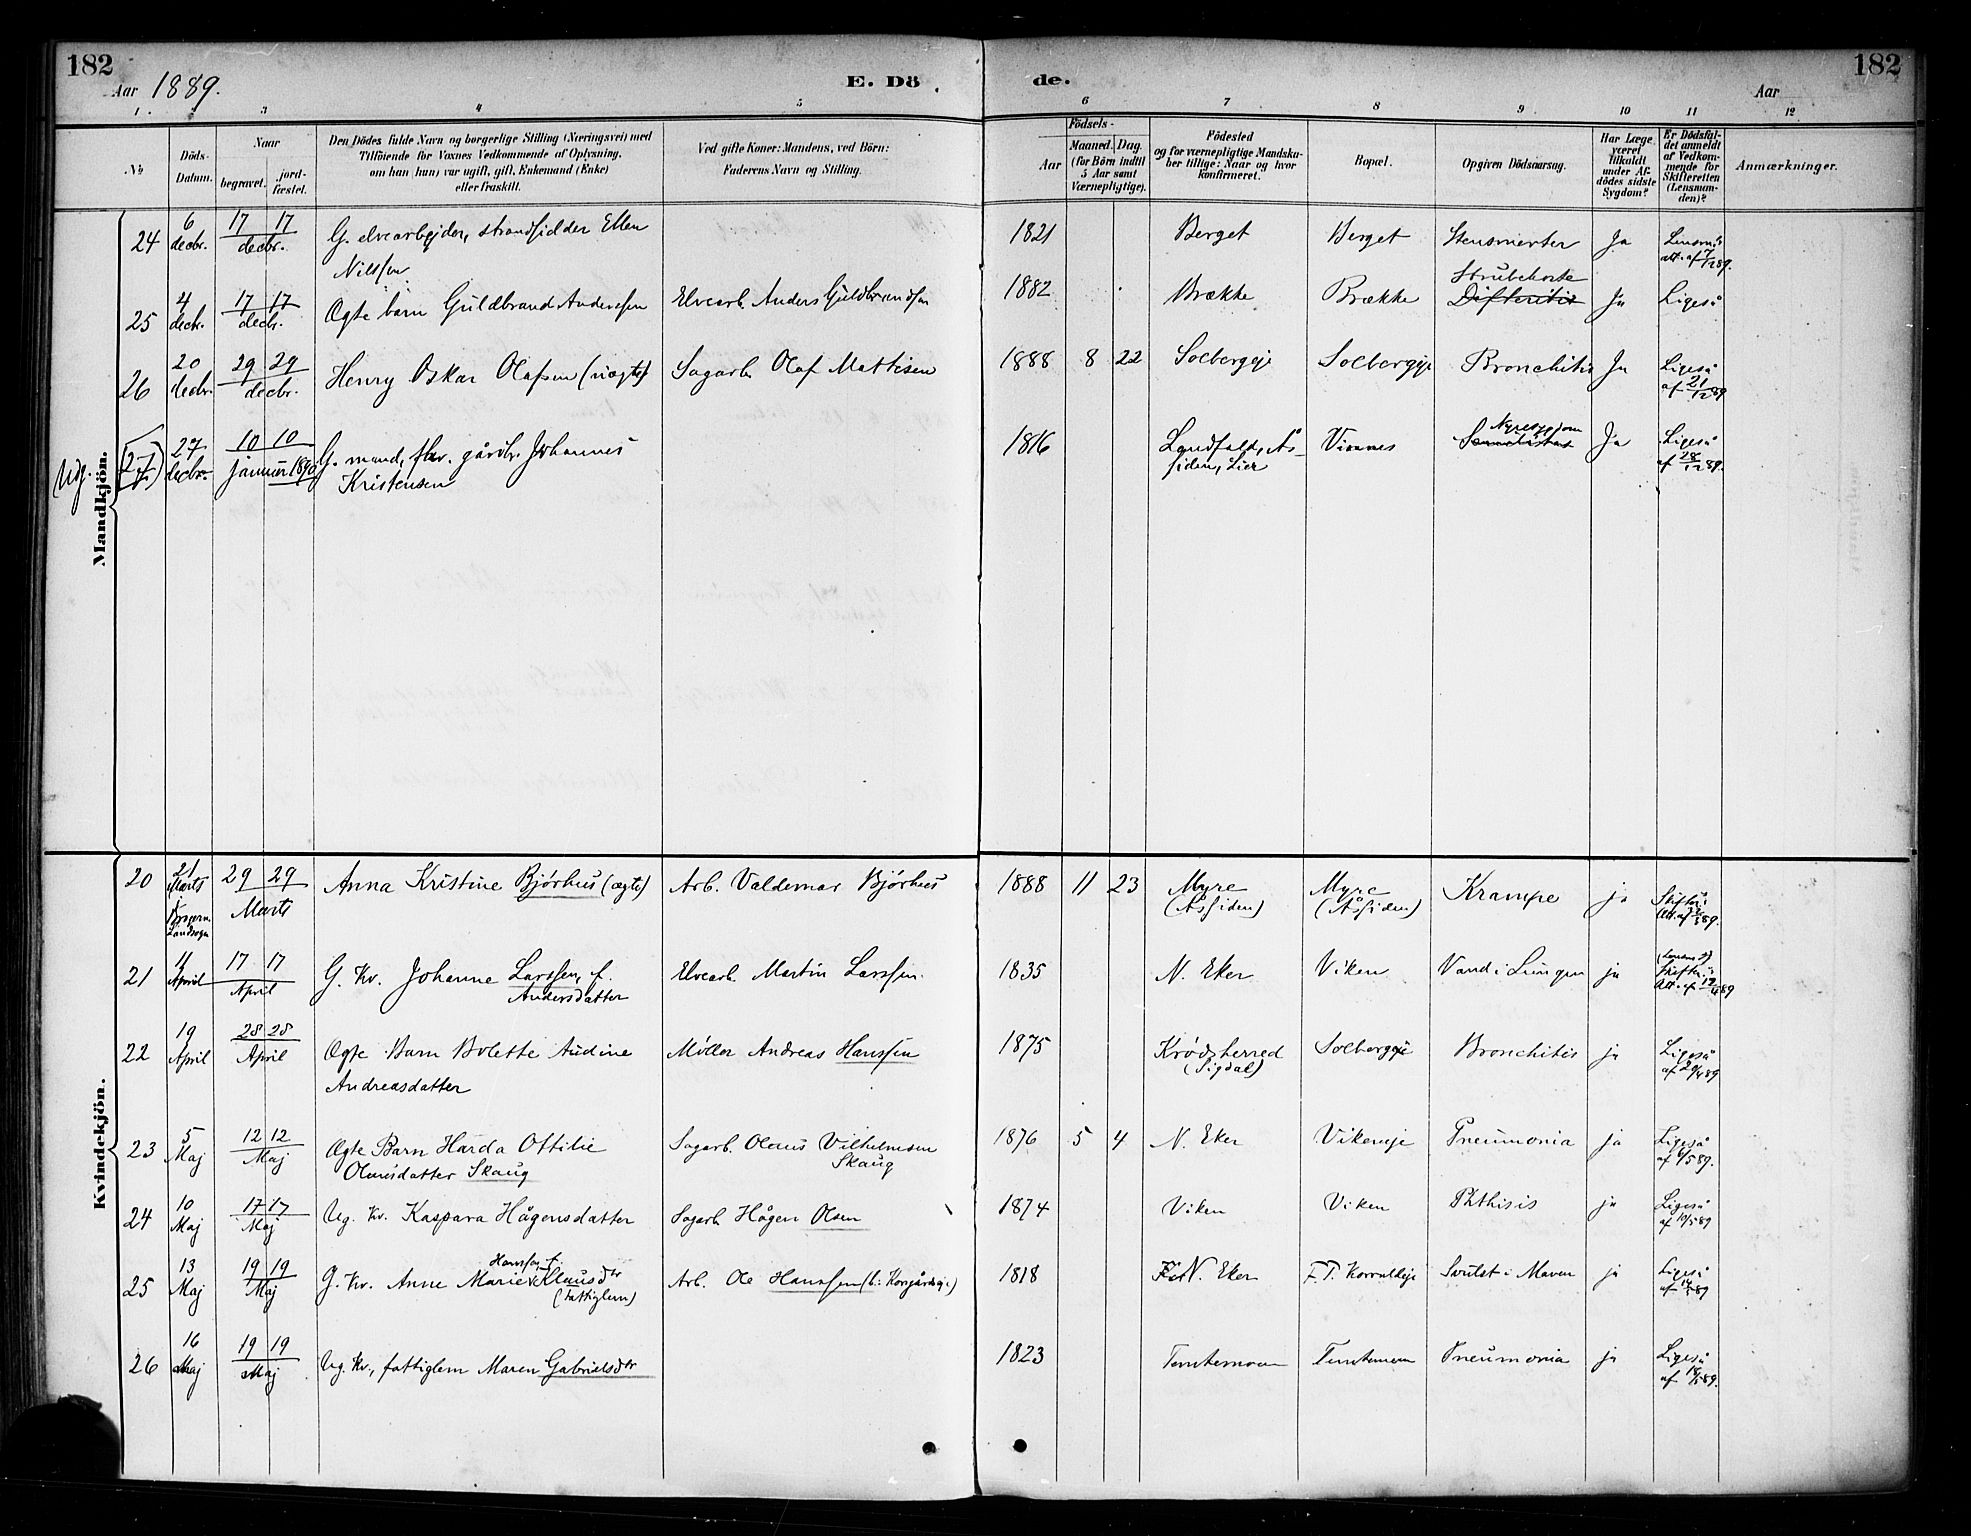 182
Aar 1889.
E. Dö
de.
Aar
182
1.
2.
3
4
5
6
7
8
9
10
11
12
No
Döds-
Datum.
Naar
begravet.
jord-
fæstet.
Den Dödes fulde Navn og borgerlige Stilling (Næringsvei) med
Tilföiende for Voxnes Vedkommende af Oplysning,
om han (hun) var ugift, gift, Enkemand (Enke)
eller fraskilt.
Ved gifte Koner: Mandens, ved Börn:
Faderens Navn og Stilling.
Födsels-
Aar
Maaned. Dag.
(for Börn indtil
5 Aar samt
Værnepligtige).
Födested
og for værnepligtige Mandska-
ber tillige: Naar og hvor
konfirmeret.
Bopæl.
Opgiven Dödsaarsag.
Har Læge
været
tilkaldt
under Af-
dödes sidste
Sygdom?
Er Dödsfal-
det anmeldt
af Vedkom-
mende for
Skifteretten
(Lensman-
den)?
Anmærkninger.
Mandkjön.
24 6 decbr. 17 17 decbr. G. elvearbejder, strandsidder Ellen
Nilssen
1821 Berget Berget Ja
att. af 7/12 89.
25 4 decbr. 17 17 decbr. Ægte barn Guldbrand Anderssen Elvearb. Anders Guldbrandsen 1882 Brække Brække Strubehoste
Difteritis Ja Ligeså
26 20 decbr. 29 29 decbr. Henry Oskar Olafsen (uægte) Sagarb. Olaf Mattisen 1888 8 22 Solbergeje Solbergeje Bronchitis Ja Ligeså
af 21/12 89
Udg. (27) 27 decbr. 10 10 januar 1890 G. mand, fhv. gårdbr. Johannes
Kristensen
1816 Landfald, Ås-
siden, Lier Nyresygdom
Ja Ligeså
af 28/12 89.
Kvindekjön.
20 21 Marts i Landsogn 29 29 Marts Anna Kristine Bjørhus (ægte) Arb. Valdemar Bjørhus 1888 11 23 Myre
(Åssiden) Myre
(Åssiden) Krampe ja
21 11 April 17 17 April G. Kv. Johanne Larssen, f.
Andersdatter
Elvearb. Martin Larssen. 1835 N. Eker Viken Vand i Lungen ja
Att. af 12/4 89
22 19 April 28 28 April Ægte Barn Bolette Audine
Andreasdatter
Møller Andreas Hanssen 1875 Krødsherred
(Sigdal) Solbergeje Bronchitis ja Ligeså
af 20/4 89
23 5 Maj 12 12 Maj Ægte Barn Harda Ottilie
Olausdatter Skaug
Sagarb. Olaus Vilhelmsen
Skaug
1876 5 4 N. Eker Vikeneje Pneumonia ja Ligeså
af 6/5 89.
24 10 Maj 17 17 Maj Ug. Kv. Kaspara Hågensdatter Sagarb. Hågen Olsen 1874 Viken Viken Phthisis ja Ligeså
af 10/5 89
25 13 Maj 19 19 Maj G. Kv. Anne Marie Hanssen f. Klausdtr
(fattiglem)
Arb. Ole Hanssen 1818 N. Eker Svulst i Maven ja Ligeså
af 14/5 89
26 16 Maj 19 19 Maj Ug. Kv., fattiglem Maren Gabrielsdtr 1823 Temtemoen Temtemoen Pneumonia ja Ligeså
af 18/5 89.